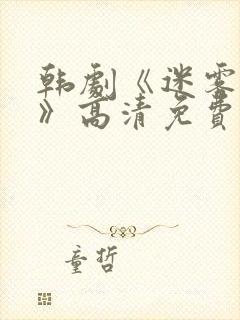 韩劇《迷雾
》高清免費
童哲